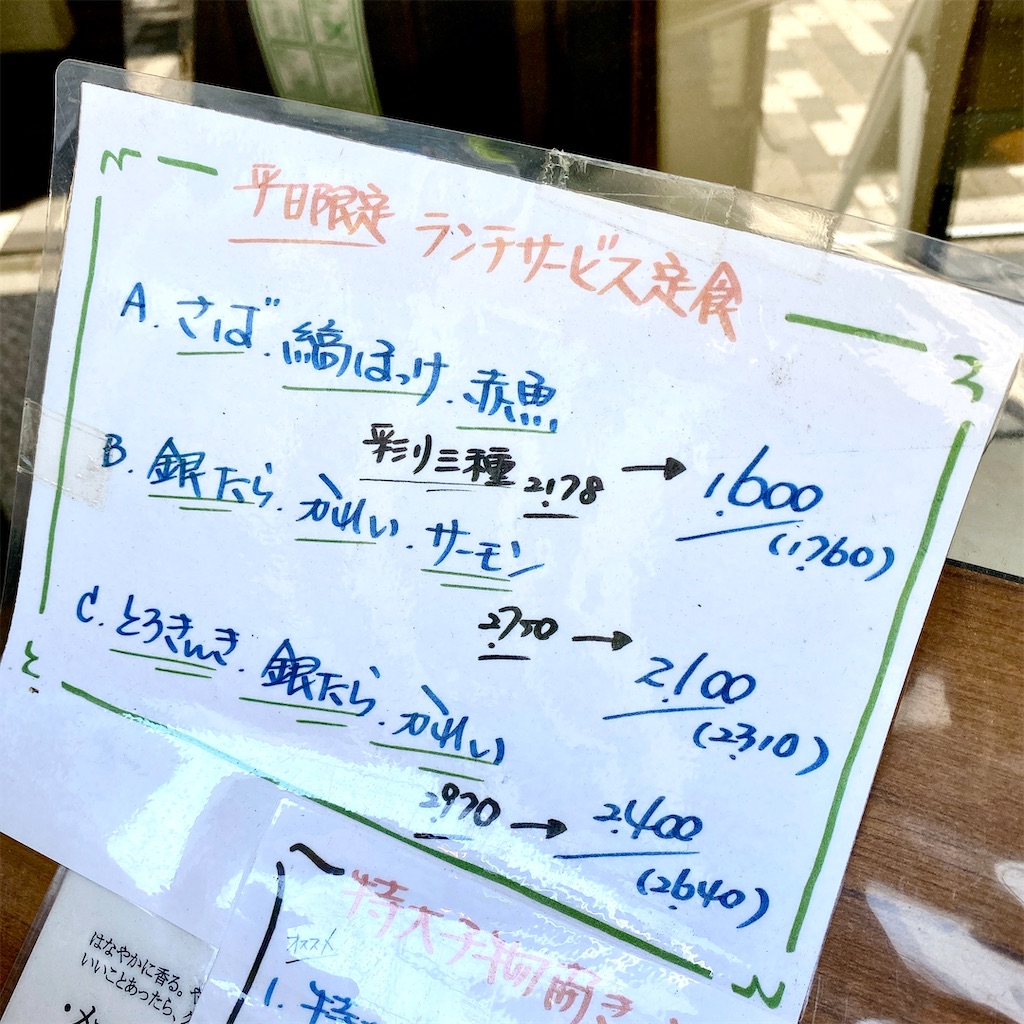 平日限定 ランチサービス定食
A. さば. 縞ほっけ. 赤魚
彩り三種 2,178 → 1,600
(1,760)
B. 銀たら. かれい. サーモン
2,750 → 2,100
(2,310)
C. とろきんき. 銀たら. かれい
2,970 → 2,400
(2,640)
オススメ
1. 特
はなやかに香る。や
いいことあったら、